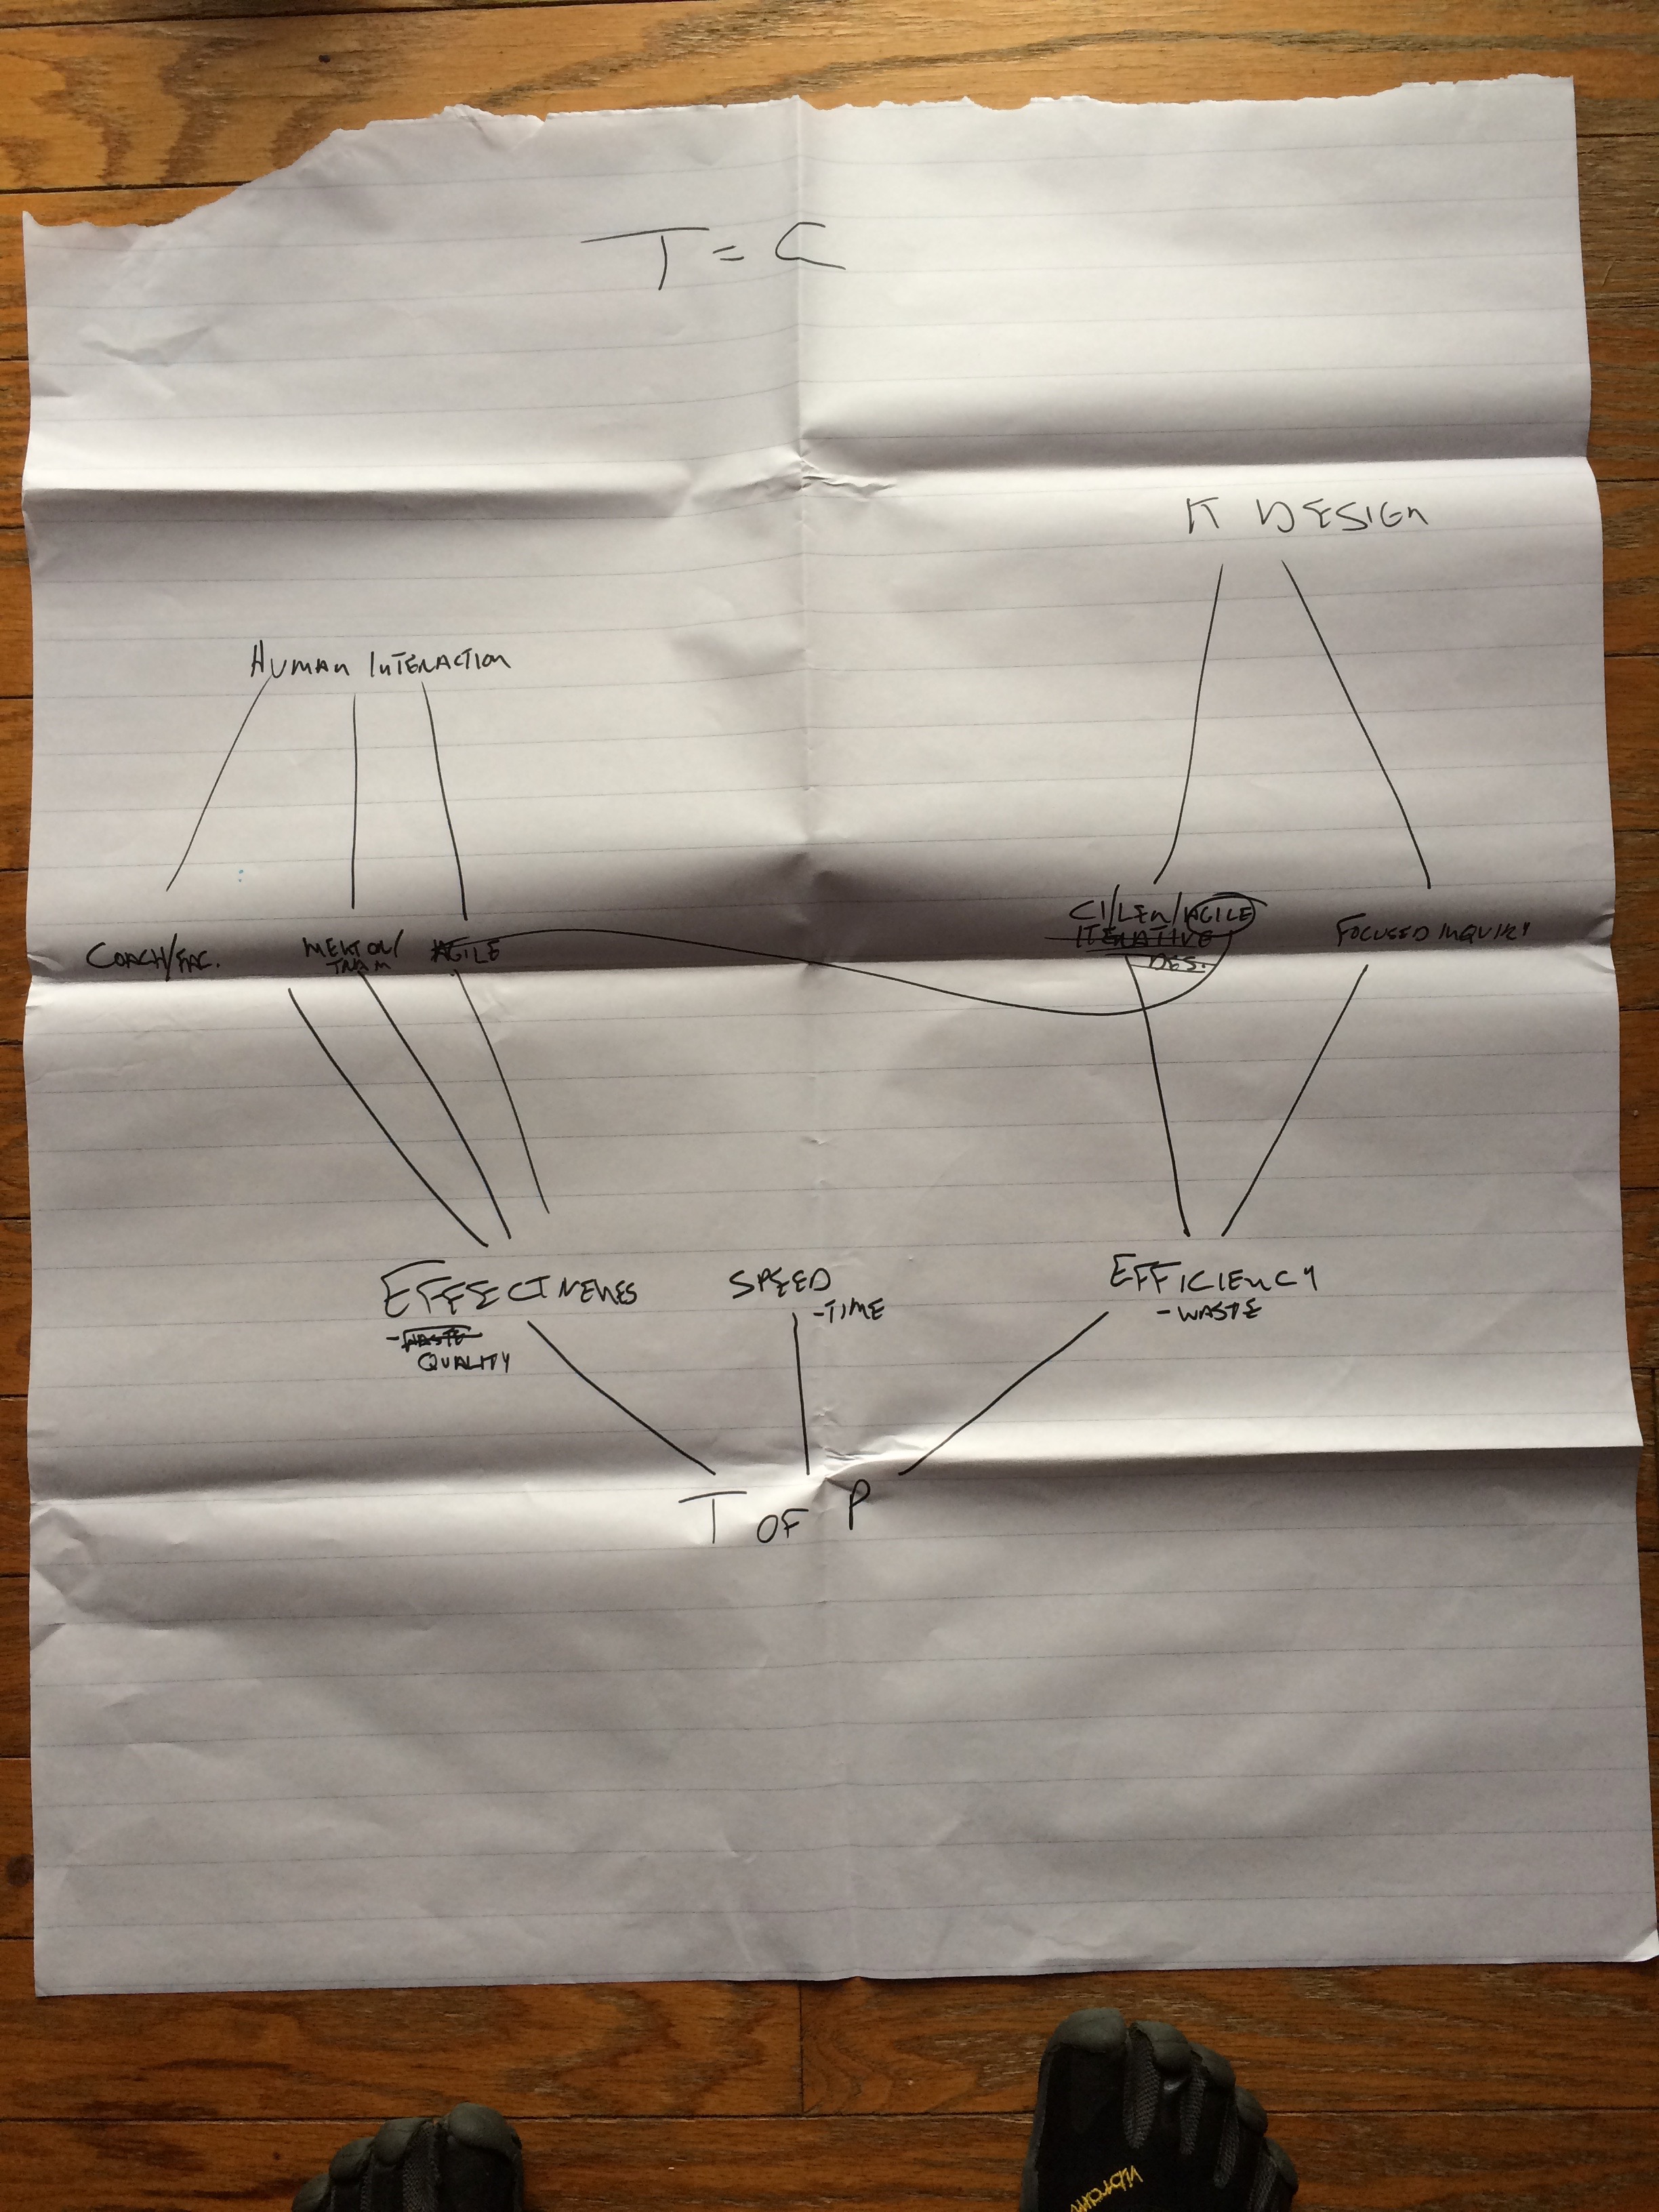 T = C
K DESIGN
HUMAN INTERACTION
COACH/FAC.
AGILE
CI/LEN/AGILE
ITERATIVE
DES.
FOCUSED INQUIRY
EFFECTIVENES
- WASTE
QUALITY
SPEED
- TIME
EFFICIENCY
- WASTE
T OF P
vibram